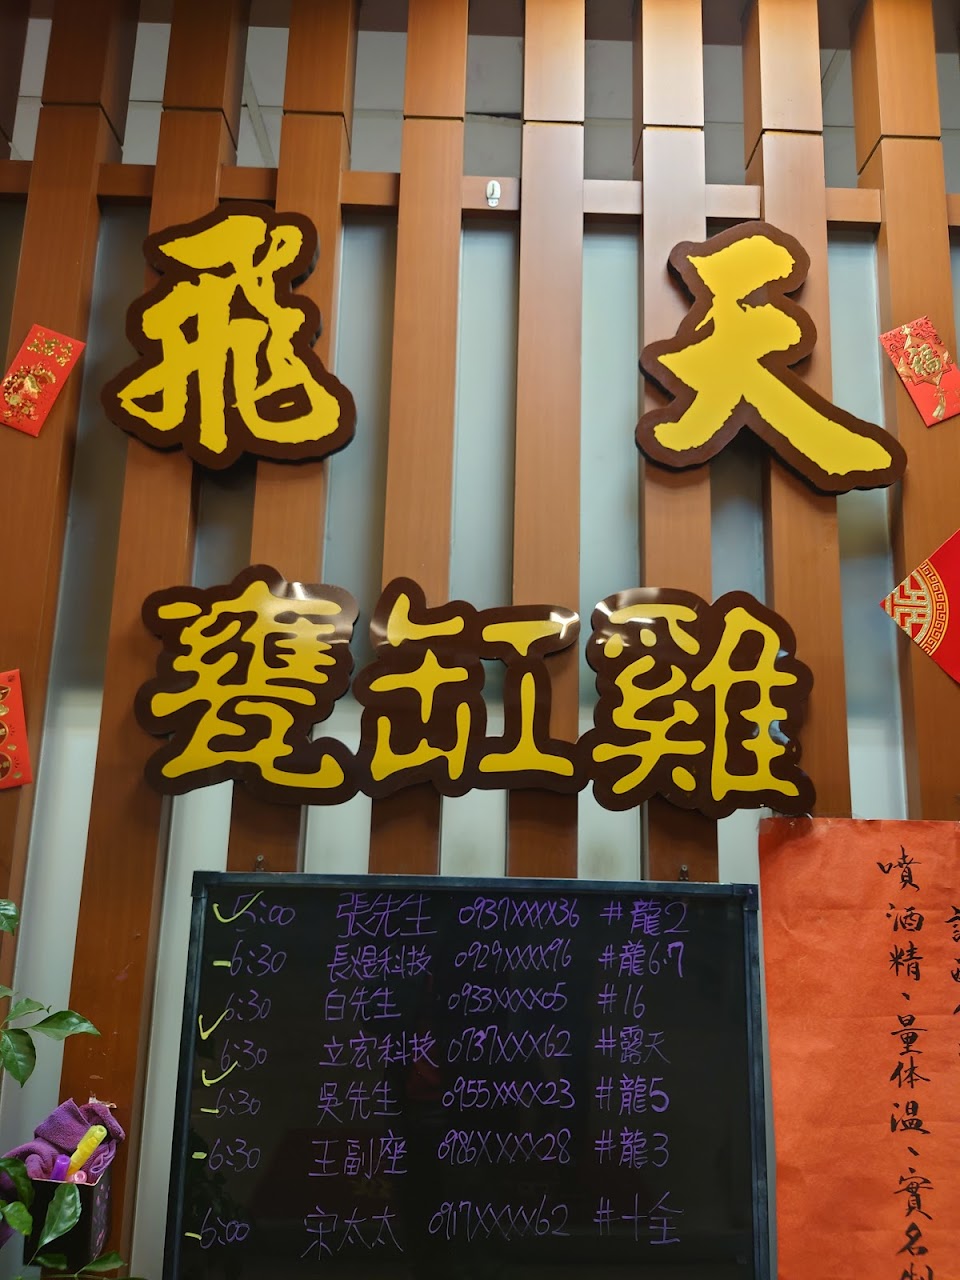 飛天
甕缸雞
5:00 張先生 0937XXXX36 #龍2
6:30 長煜科技 0929XXXX96 #龍6.7
6:30 白先生 0933XXXX05 #16
6:30 立宏科技 0737XXXX62 #露天
6:30 吳先生 0955XXXX23 #龍5
6:30 王副座 0986XXXX28 #龍3
6:00 宋太太 0917XXXX62 #十全
噴酒精、量体溫、實名制
福